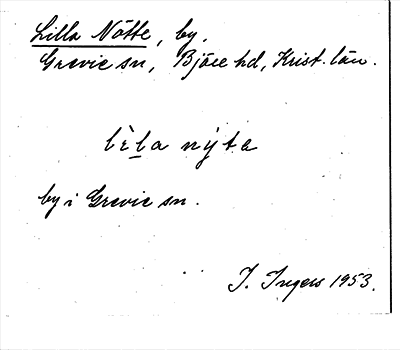 Lilla Nötte, by,
Grevie sn, Bjäre hd, Krist. län.
lìla nýta
by i Grevie sn.
I. Ingers 1953.